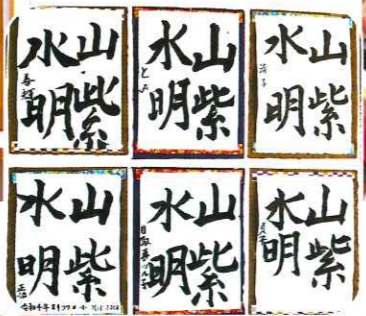 山紫
水明
山紫
水明
とみ
山紫
水明
山紫
水明
正治
山紫
水明
山紫
水明